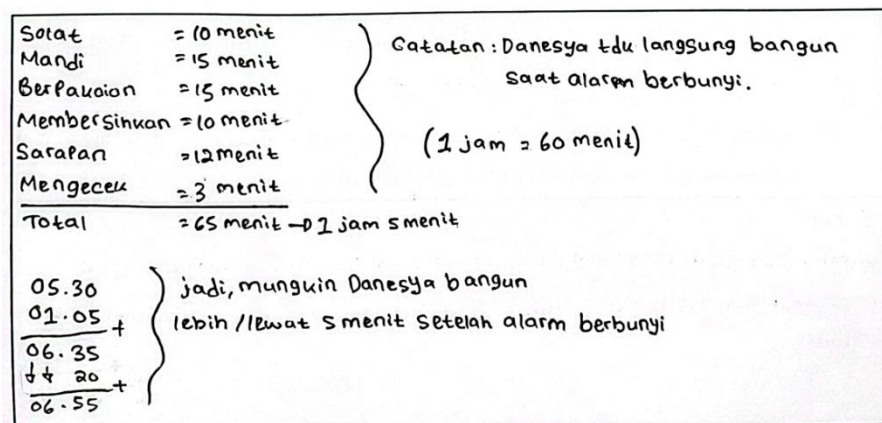 Solat = 10 menit
Mandi = 15 menit
Berpakaian = 15 menit
Membersihkan = 10 menit
Sarapan = 12 menit
Mengecek = 3 menit
Total = 65 menit → 1 jam 5 menit
Catatan : Danesya tdk langsung bangun
saat alarm berbunyi.
(1 jam = 60 menit)
05.30
01.05 +
06.35
20 +
06.55
jadi, mungkin Danesya bangun
lebih /lewat 5 menit setelah alarm berbunyi